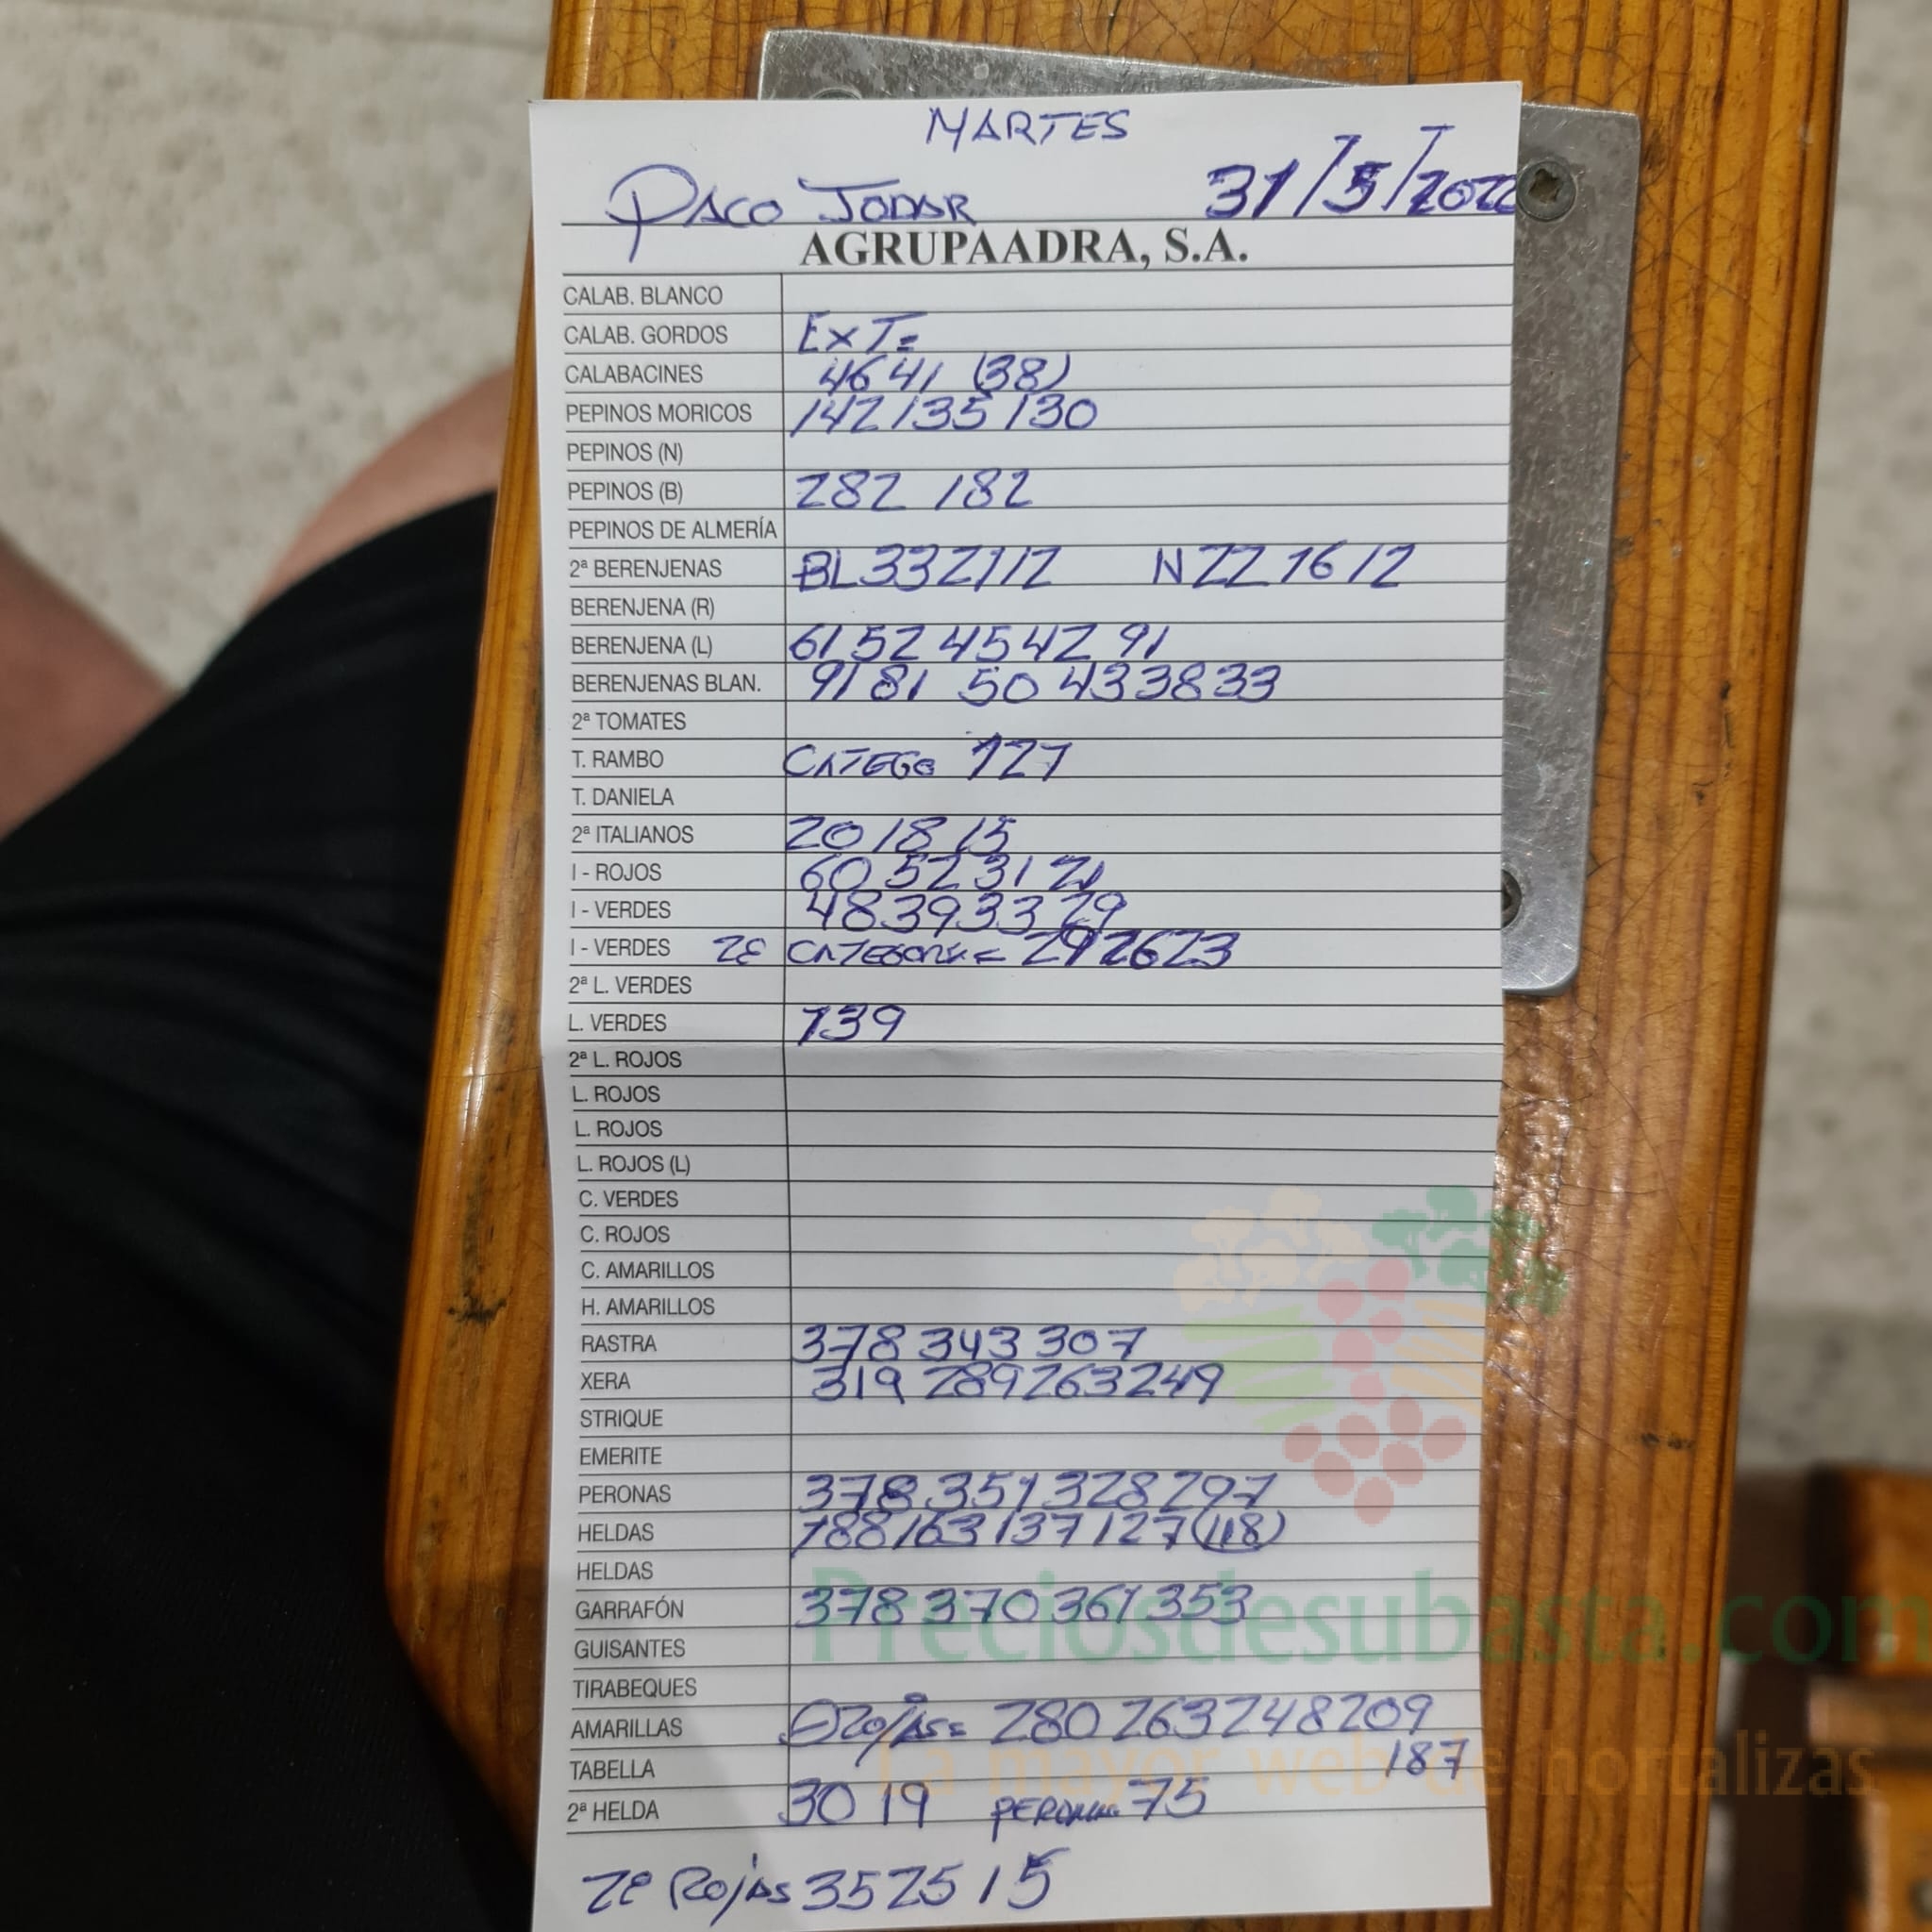 MARTES
PACO JODAR 31/5/2022
AGRUPAADRA, S.A.
CALAB. BLANCO
CALAB. GORDOS EXT=
CALABACINES 46 41 (38)
PEPINOS MORICOS 142 135 130
PEPINOS (N)
PEPINOS (B) 282 182
PEPINOS DE ALMERÍA
2ª BERENJENAS BL 33 21 12 N 22 16 12
BERENJENA (R)
BERENJENA (L) 61 52 45 42 91
BERENJENAS BLAN. 91 81 50 43 38 33
2ª TOMATES
T. RAMBO 127
T. DANIELA
2ª ITALIANOS 20 18 15
I - ROJOS 60 52 31 21
I - VERDES 48 39 33 29
I - VERDES 2ª 29 26 23
2ª L. VERDES
L. VERDES 139
2ª L. ROJOS
L. ROJOS
L. ROJOS
L. ROJOS (L)
C. VERDES
C. ROJOS
C. AMARILLOS
H. AMARILLOS
RASTRA 378 343 307
XERA 319 289 263 249
STRIQUE
EMERITE
PERONAS 378 351 328 297
HELDAS 188 163 137 127 (118)
HELDAS
GARRAFÓN 378 370 361 353
GUISANTES
TIRABEQUES
AMARILLAS 280 263 248 209
TABELLA 187
2ª HELDA 30 19 PERONA 75
2ª ROJAS 35 25 15
Preciosdesubasta.com
La mayor web de hortalizas